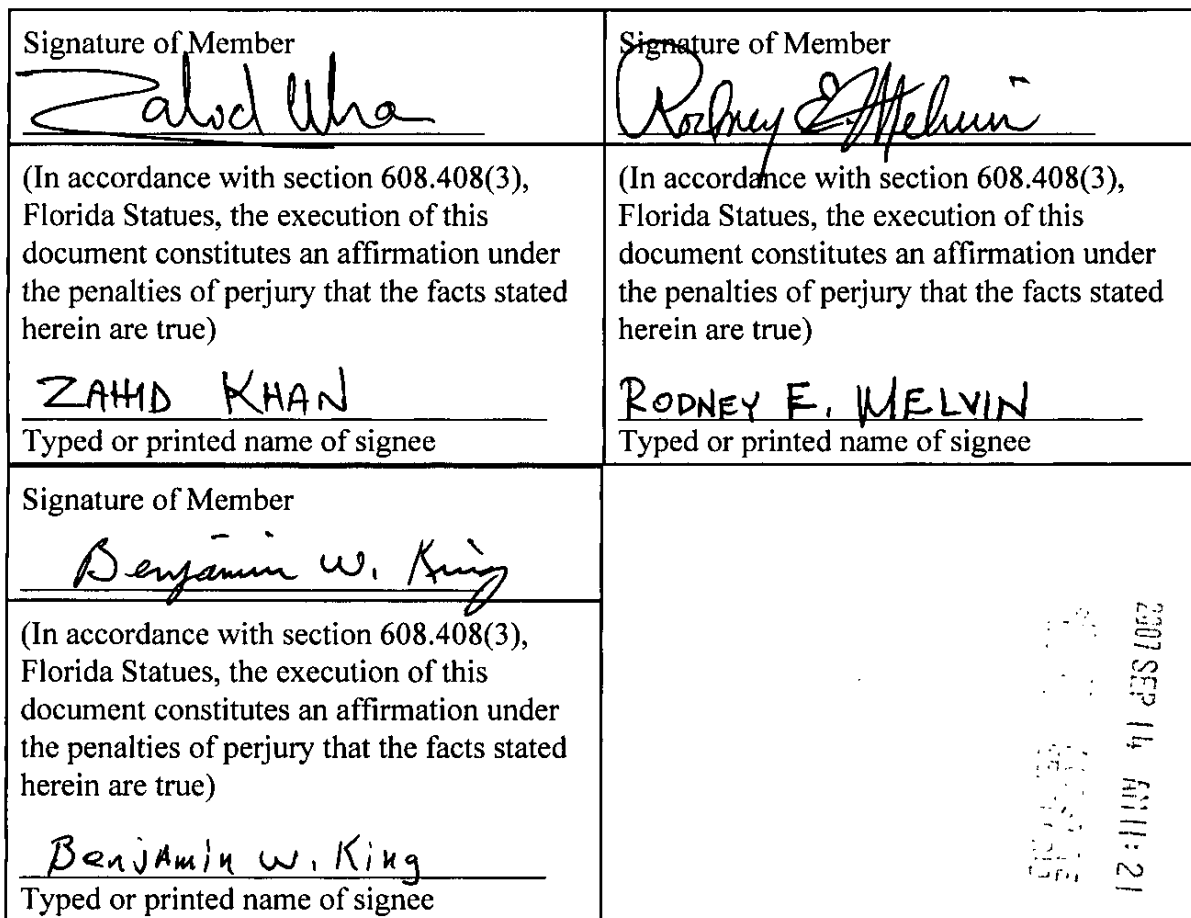 Signature of Member
Zahid Kha
(In accordance with section 608.408(3),
Florida Statues, the execution of this
document constitutes an affirmation under
the penalties of perjury that the facts stated
herein are true)
ZAHID KHAN
Typed or printed name of signee
Signature of Member
Rodney E. Melvin
(In accordance with section 608.408(3),
Florida Statues, the execution of this
document constitutes an affirmation under
the penalties of perjury that the facts stated
herein are true)
RODNEY E. MELVIN
Typed or printed name of signee
Signature of Member
Benjamin W. King
(In accordance with section 608.408(3),
Florida Statues, the execution of this
document constitutes an affirmation under
the penalties of perjury that the facts stated
herein are true)
BenjAmin W. King
Typed or printed name of signee
2007 SEP 14 AM 11: 21